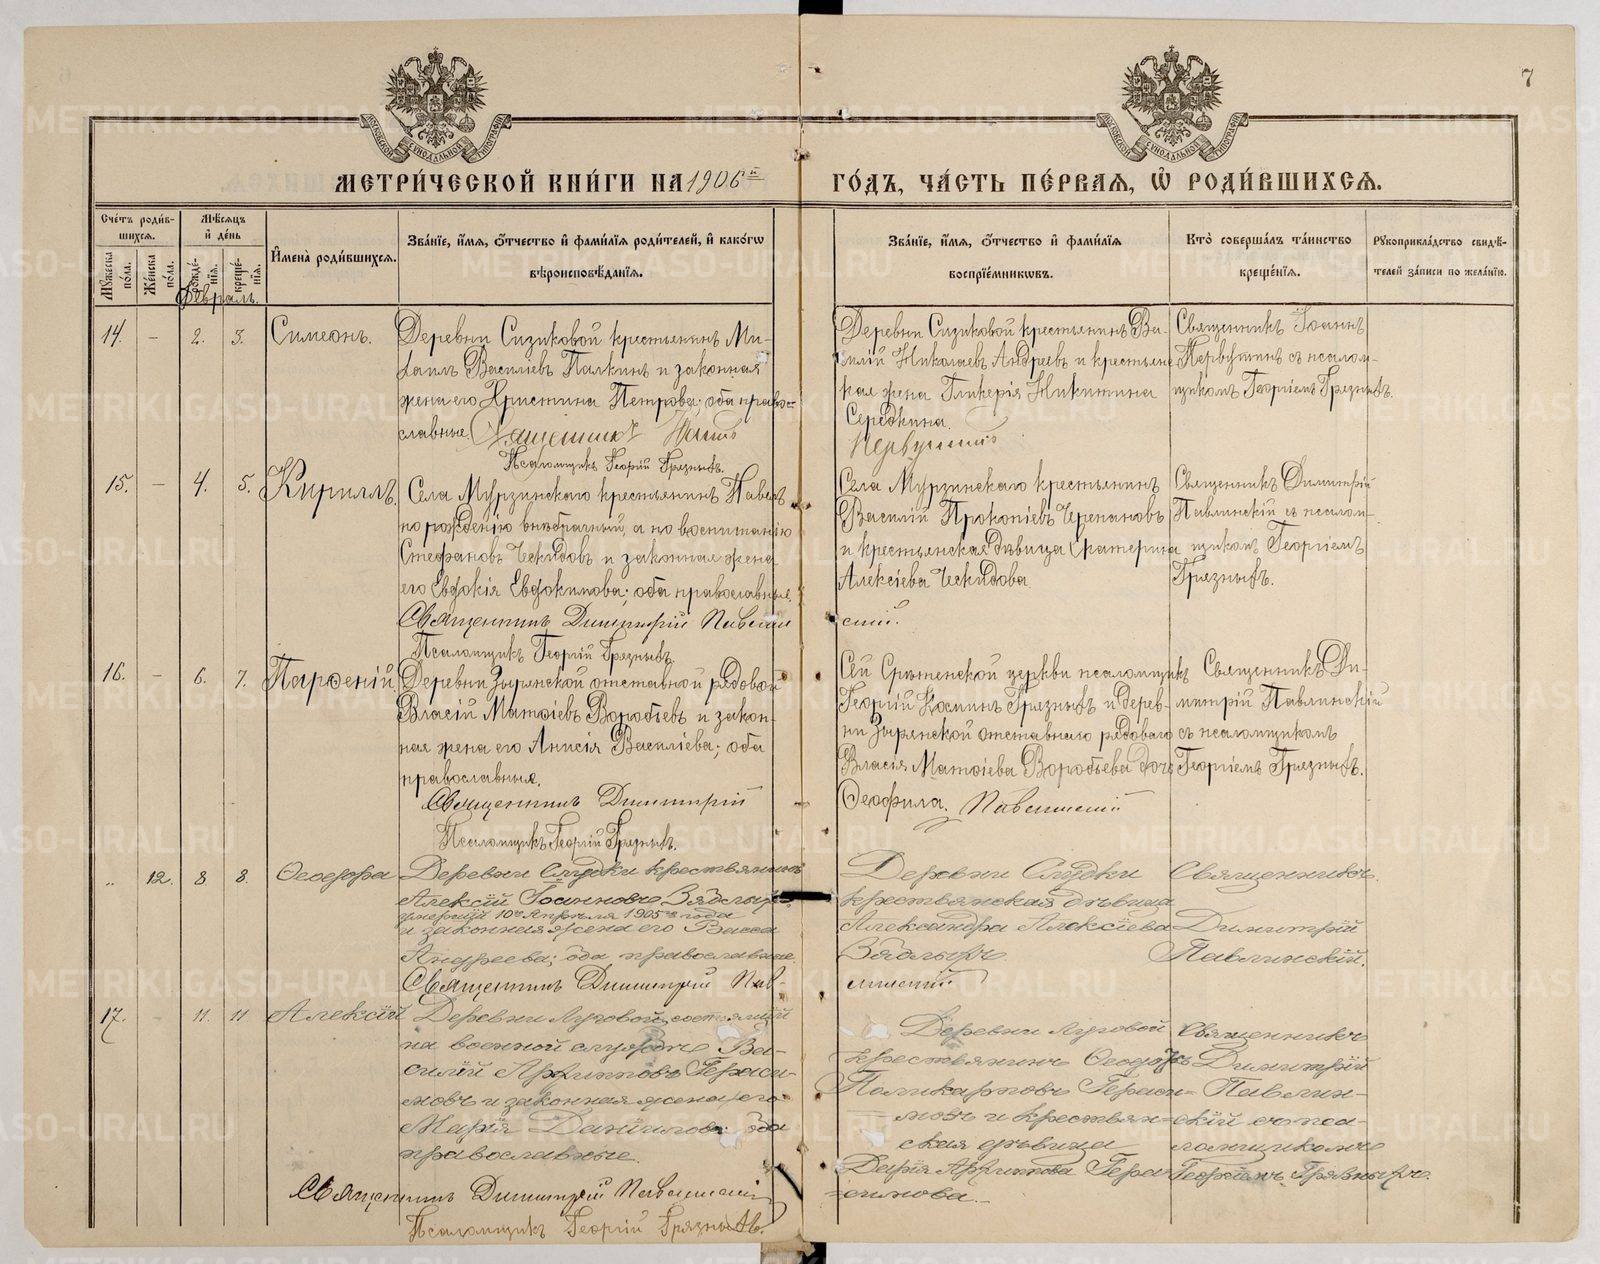 7
МЕТРИ́ЧЕСКОЙ КНИ́ГИ НА 1906й
ГО́ДЪ, ЧА́СТЬ ПЕ́РВАѦ, Ѽ РОДИ́ВШИХСѦ.
Сче́тъ роди́в-
шихсѧ.
Мꙋ́жеска по́ла.
Же́нска по́ла.
Мѣ́сѧцъ
и҆ де́нь
рожде́-
нїѧ.
креще́-
нїѧ.
И҆мена̀ роди́вшихсѧ.
Зва́нїе, и҆́мѧ, ѻ҆́тчество и҆ фами́лїѧ роди́телей, и҆ како́гѡ
вѣроисповѣ́данїѧ.
Зва́нїе, и҆́мѧ, ѻ҆́тчество и҆ фами́лїѧ
воспрїе́мникѡвъ.
Кто̀ соверша́лъ та́инство
креще́нїѧ.
Рꙋкоприкла́дство свидѣ́-
телей за́писи по жела́нїю.
Февраль.
14. - 2. 3. Симеонъ.
Деревни Сизиковой крестьянинъ Ми-
хаилъ Василіевъ Палкинъ и законная
жена его Христина Петрова; оба право-
славные. Священникъ Іоаннъ
Псаломщикъ Георгій Грязныхъ.
Деревни Сизиковой крестьянинъ Ва-
силій Николаевъ Андреевъ и крестьянс
кая жена Гликерія Никитина
Середкина.
Первушинъ
Священникъ Іоаннъ
Первушинъ съ псалом-
щикомъ Георгіемъ Грязныхъ.
15. - 4. 5. Кириллъ.
Села Мурзинскаго крестьянинъ Павелъ
по рожденію внѣбрачный, а по воспитанію
Стефановъ Чекидовъ и законная жена
его Евдокія Евдокимова; оба православные.
Священникъ Димитрій Павлин
Псаломщикъ Георгій Грязныхъ.
Села Мурзинскаго крестьянинъ
Василій Прокопіевъ Черепановъ
и крестьянская дѣвица Екатерина
Алексіева Чекидова
скій.
Священникъ Димитрій
Павлинскій съ псалом-
щикомъ Георгіемъ
Грязныхъ.
16. - 6. 7. Парѳеній.
Деревни Зырянской отставной рядовой
Власій Матѳіевъ Воробьевъ и закон-
ная жена его Анисія Василіева; оба
православные.
Священникъ Димитрій
Псаломщикъ Георгій Грязныхъ.
Сей Срѣтенской церкви псаломщикъ
Георгій Космин Грязныхъ и дерев-
ни Зырянской отставнаго рядоваго
Власія Матѳіева Воробьева дочь
Ѳеофила. Павлинскій
Священникъ Ди-
митрій Павлинскій
съ псаломщикомъ
Георгіемъ Грязныхъ.
" 12. 8. 8. Ѳеодора
Деревни Слудки крестьянинъ
Алексій Іоанновъ Вядлыхъ,
умершій 10го Апрѣля 1905го года
и законная жена его Васса
Андреева; оба православные.
Священникъ Димитрій Пав-
Деревни Слудки
крестьянская дѣвица
Александра Алексіева
Вядлыхъ
линскій
Священникъ
Димитрій
Павлинскій.
17. - 11. 11 Алексій
Деревни Луговой, состоящій
на военной службѣ Ва-
силій Архиповъ Гераси-
мовъ и законная жена его
Марія Даніилова; оба
православные.
Священникъ Димитрій Павлинскій
Псаломщикъ Георгій Грязныхъ.
Деревни Луговой
крестьянинъ Ѳеодоръ
Поликарповъ Гераси-
мовъ и крестьян-
ская дѣвица
Дарія Архипова Гера-
симова.
Священникъ
Димитрій
Павлин-
скій съ пса-
ломщикомъ
Георгіемъ Грязныхъ.
METRIKI.GASO-URAL.RU